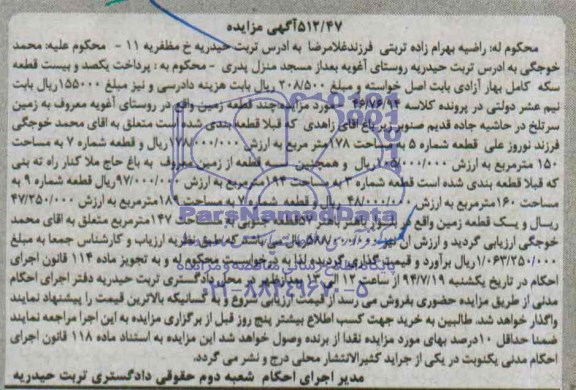 ۵۱۲/۴۷آگهی مزایده
محکوم له: راضیه بهرام زاده تربتی فرزندغلامرضا به ادرس تربت حیدریه خ مظفریه ۱۱ - محکوم علیه: محمد
خوجگی به ادرس تربت حیدریه روستای آغویه بعداز مسجد منزل پدری - محکوم به : پرداخت یکصد و بیست قطعه
سکه کامل بهار آزادی بابت اصل خواسته و مبلغ ۲۰۸/۵۰۰ ریال بابت هزینه دادرسی و نیز مبلغ ۱۵۵۰۰۰ریال بابت
نیم عشر دولتی در پرونده کلاسه ۴۶/۷۶/۹۴ مورد مزایده چند قطعه زمین واقع در روستای آغویه معروف به زمین
سرتلخ در حاشیه جاده قدیم صنوبر پرباغ اقای زاهدی که قبلا قطعه بندی شده است متعلق به اقای محمد خوجگی
فرزند نوروز علی قطعه شماره ۵ به مساحت ۱۷۸متر مربع به ارزش ۱۷۸/۰۰۰/۰۰۰ریال و قطعه شماره ۷ به مساحت
۱۵۰ مترمربع به ارزش ریال و همچنین سه قطعه از زمین معروف به باغ حاج ملا کنار راه ته بنی
که قبلا قطعه بندی شده است قطعه شماره ۲ به مساحت ۱۹۴مترمربع به ارزش ۹۷/۰۰۰/۰۰۰ریال قطعه شماره ۹ به
مساحت ۱۶۰مترمربع به ارزش ۴۸/۰۰۰/۰۰۰ ریال و قطعه شماره ۷ به مساحت ۱۸۹مترمربع به ارزش ۴۷/۲۵۰/۰۰۰
ریال و یک قطعه زمین واقع در قطعه جنوبی به مساحت ۱۴۷مترمربع متعلق به اقای محمد
خوجگی ارزیابی گردید و ارزش ان ریال می باشد که طبق نظریه ارزیاب و کارشناس جمعا به مبلغ
۱/۰۶۳/۲۵۰/۰۰۰ریال برآورد و قیمت گذاری گردیده لذا به درخواست محکوم له و به تجویز ماده ۱۱۴ قانون اجرای
احکام در تاریخ یکشنبه ۹۴/۷/۱۹ از ساعت ۱۲ الی در محل دادگستری تربت حیدریه دفتر اجرای احکام
مدنی از طریق مزایده حضوری بفروش می رسد از قیمت ارزیابی شروع و به کسانیکه بالاترین قیمت را پیشنهاد نمایند
واگذار خواهد شد. طالبین به خرید جهت کسب اطلاع بیشتر پنج روز قبل از برگزاری مزایده به این اجرا مراجعه نمایند
ضمنا حداقل ۱۰درصد بهای مورد مزایده نقدا از برنده وصول خواهد شد این مزایده به استناد ماده ۱۱۸ قانون اجرای
احکام مدنی یکنوبت در یکی از جراید کثیرالانتشار محلی درج و نشر می گردد.
مدیر اجرای احکام شعبه دوم حقوقی دادگستری تربت حیدریه
ParsNamadData
پایگاه اطلاع رسانی مناقصه و مزایده
۰۲۱-۸۸۳۴۹۶۷۰-۵